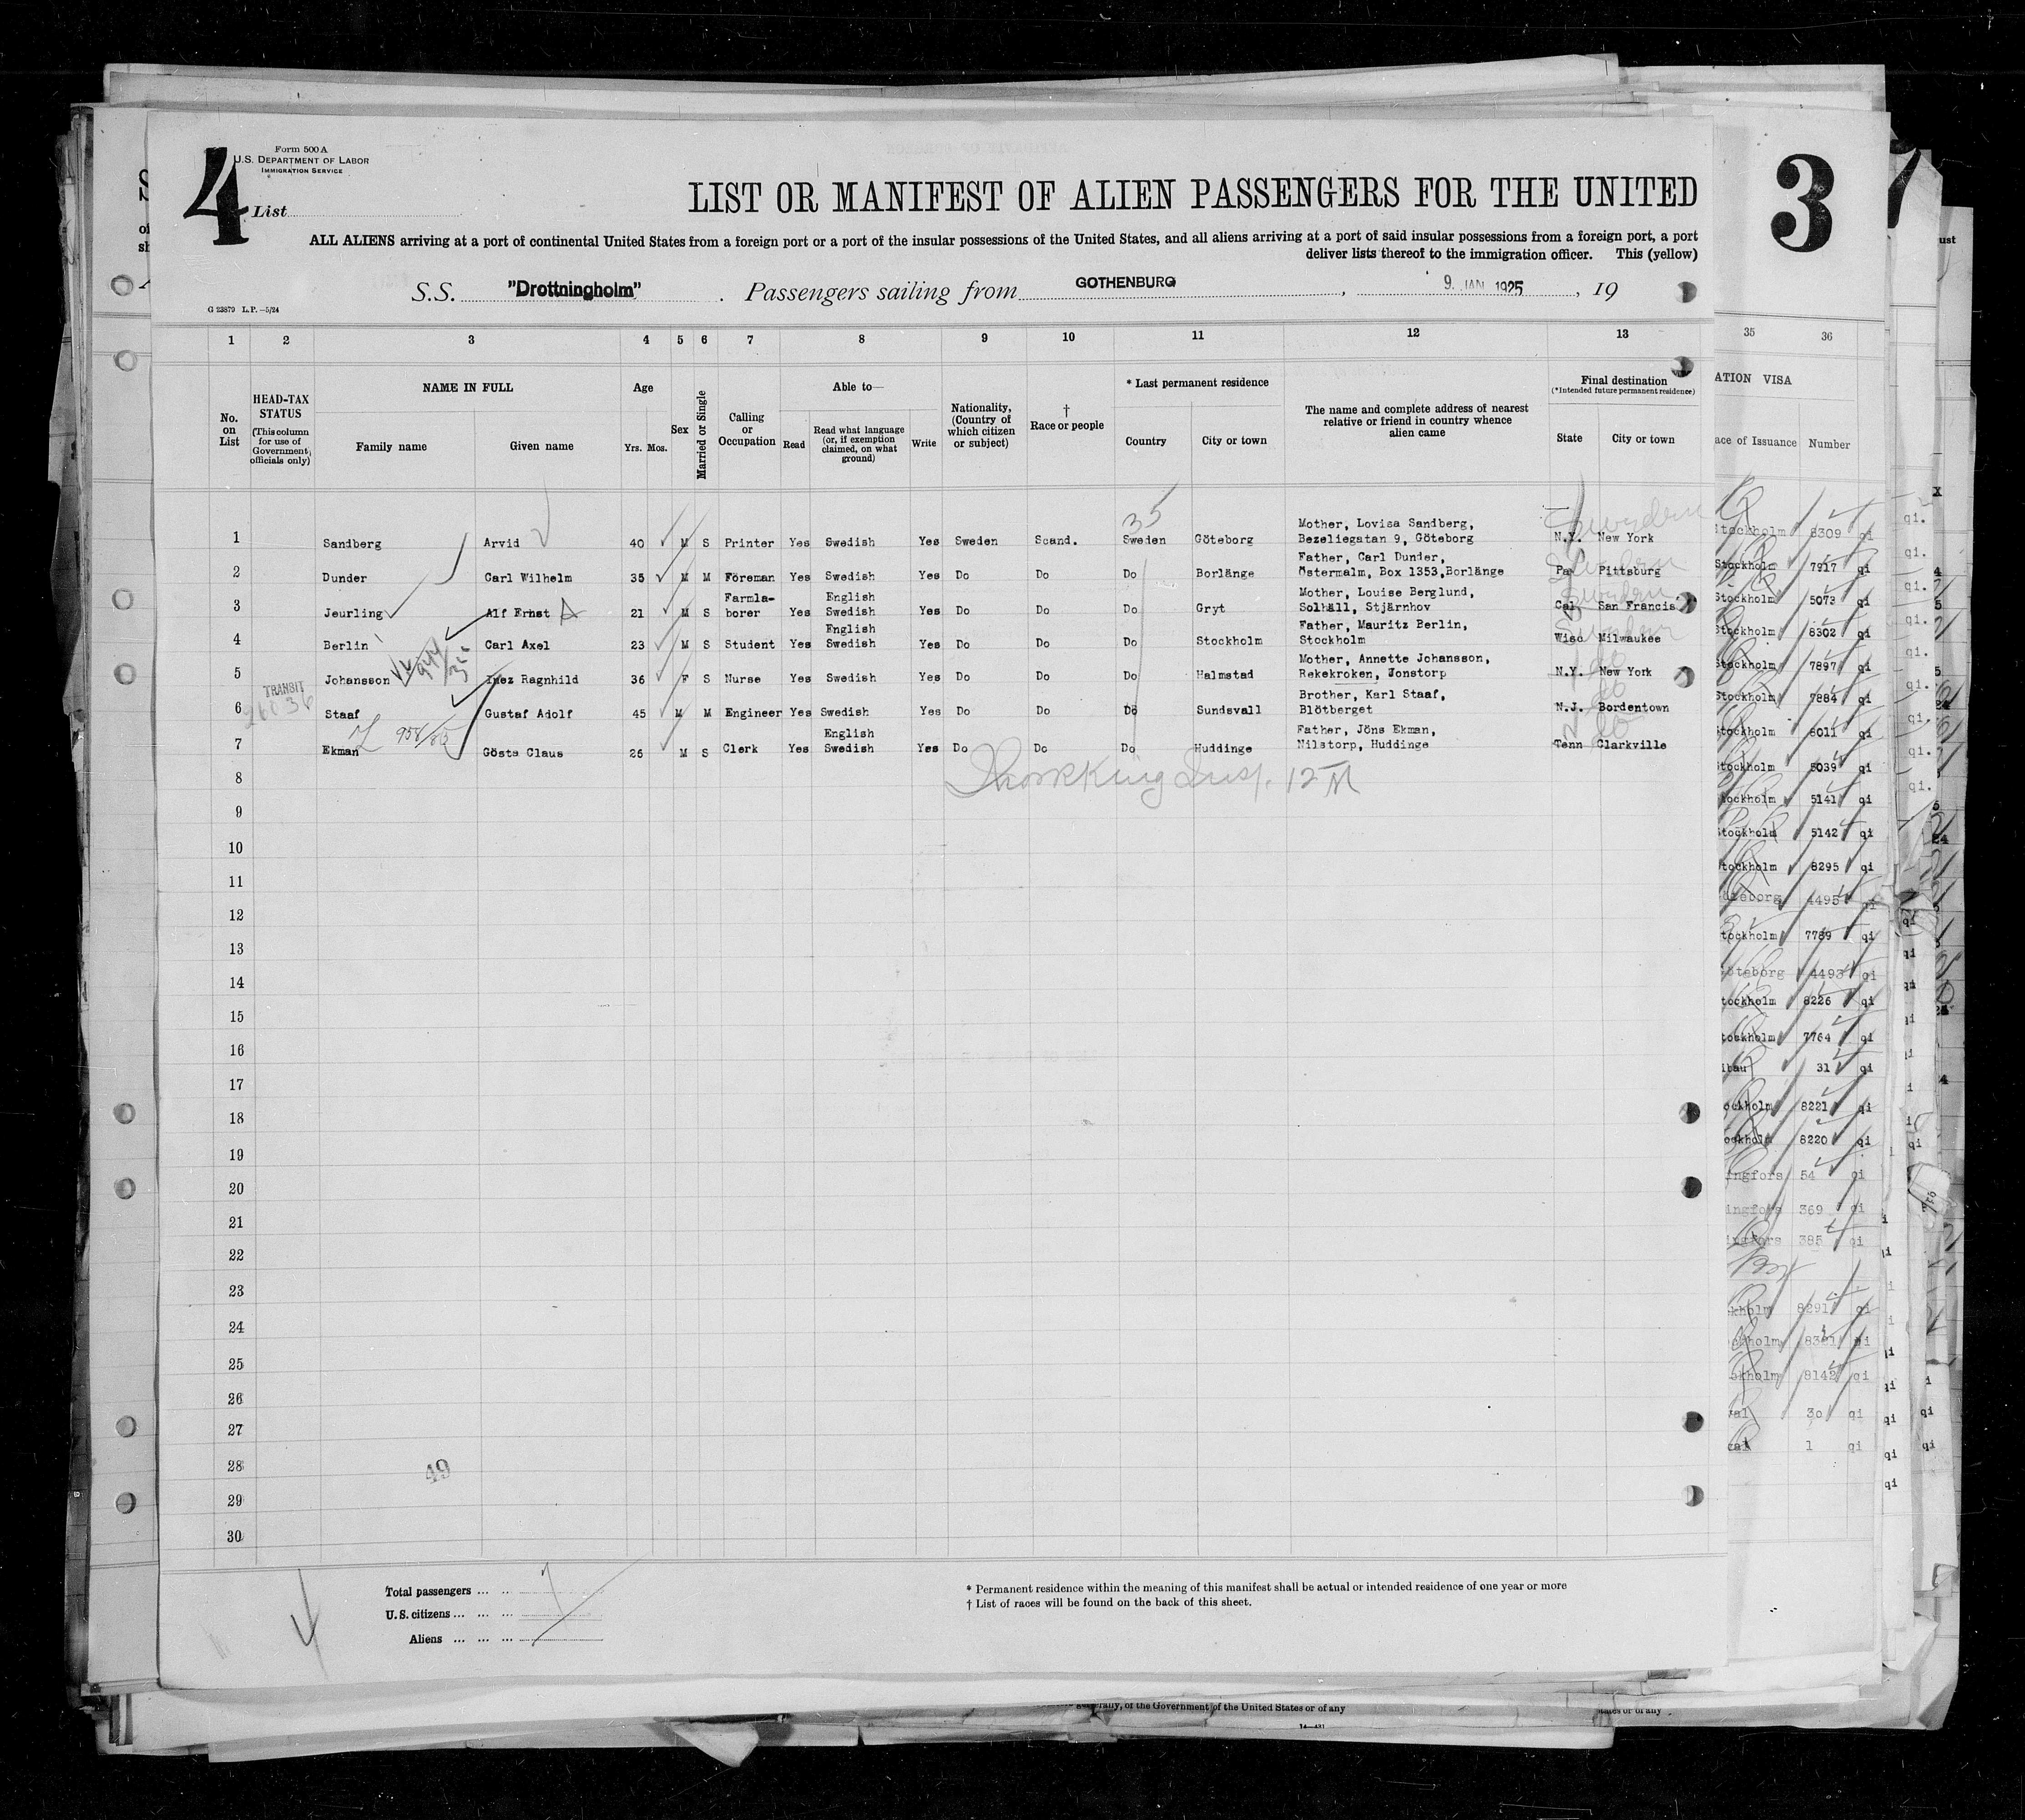 4
Form 500 A
U.S. DEPARTMENT OF LABOR
IMMIGRATION SERVICE
List
LIST OR MANIFEST OF ALIEN PASSENGERS FOR THE UNITED
ALL ALIENS arriving at a port of continental United States from a foreign port or a port of the insular possessions of the United States, and all aliens arriving at a port of said insular possessions from a foreign port, a port
deliver lists thereof to the immigration officer. This (yellow)
S.S. "Drottningholm". Passengers sailing from GOTHENBURG, 9. JAN 1925, 19
G 23879 L.P.—5/24
1 2 3 4 5 6 7 8 9 10 11 12 13
No. on List
HEAD-TAX STATUS (This column for use of Government officials only)
NAME IN FULL
Family name
Given name
Age
Yrs. Mos.
Sex
Married or Single
Calling or Occupation
Able to—
Read
Read what language (or, if exemption claimed, on what ground)
Write
Nationality, (Country of which citizen or subject)
† Race or people
* Last permanent residence
Country
City or town
The name and complete address of nearest relative or friend in country whence alien came
Final destination
(*Intended future permanent residence)
State
City or town
35
1 Sandberg Arvid 40 M S Printer Yes Swedish Yes Sweden Scand. Sweden Göteborg Mother, Lovisa Sandberg, Bezeliegatan 9, Göteborg N.Y. New York
2 Dunder Carl Wilhelm 35 M M Föreman Yes Swedish Yes Do Do Do Borlänge Father, Carl Dunder, Östermalm, Box 1353,Borlänge Pa Pittsburg
3 Jeurling Alf Ernst 21 M S Farmla-borer Yes English Swedish Yes Do Do Do Gryt Mother, Louise Berglund, Solhäll, Stjärnhov Cal. San Francis
4 Berlin Carl Axel 23 M S Student Yes English Swedish Yes Do Do Do Stockholm Father, Mauritz Berlin, Stockholm Wisc Milwaukee
5 Johansson Inez Ragnhild 36 F S Nurse Yes Swedish Yes Do Do Do Halmstad Mother, Annette Johansson, Rekekroken, Jonstorp N.Y. New York
TRANSIT
6 Staaf Gustaf Adolf 45 M M Engineer Yes Swedish Yes Do Do Do Sundsvall Brother, Karl Staaf, Blötberget N.J. Bordentown
7 Ekman Gösta Claus 26 M S Clerk Yes English Swedish Yes Do Do Do Huddinge Father, Jöns Ekman, Nilstorp, Huddinge Tenn Clarkville
8
9
10
11
12
13
14
15
16
17
18
19
20
21
22
23
24
25
26
27
28
29
30
49
Total passengers ... .. 7
U.S. citizens ... ... ...
Aliens ... ... ...
* Permanent residence within the meaning of this manifest shall be actual or intended residence of one year or more
† List of races will be found on the back of this sheet.
3
35 36
ATION VISA
ace of Issuance Number
Stockholm 8309 qi
Stockholm 7917 qi
Stockholm 5073 qi
Stockholm 8302 qi
Stockholm 7897 qi
Stockholm 7884 qi
Stockholm 8011 qi
Stockholm 5039 qi
tockholm 5141 qi
tockholm 5142 qi
tockholm 8295 qi
4495 qi
tockholm 7769 qi
öteborg 4493 qi
tockholm 8226 qi
tockholm 7764 qi
31 qi
ockholm 8221 qi
ockholm 8220 qi
ingfors 54 qi
ingfors 369 qi
ingfors 385 qi
kholm 8291 qi
8142 qi
30 qi
1 qi
of the Government of the United States or of any